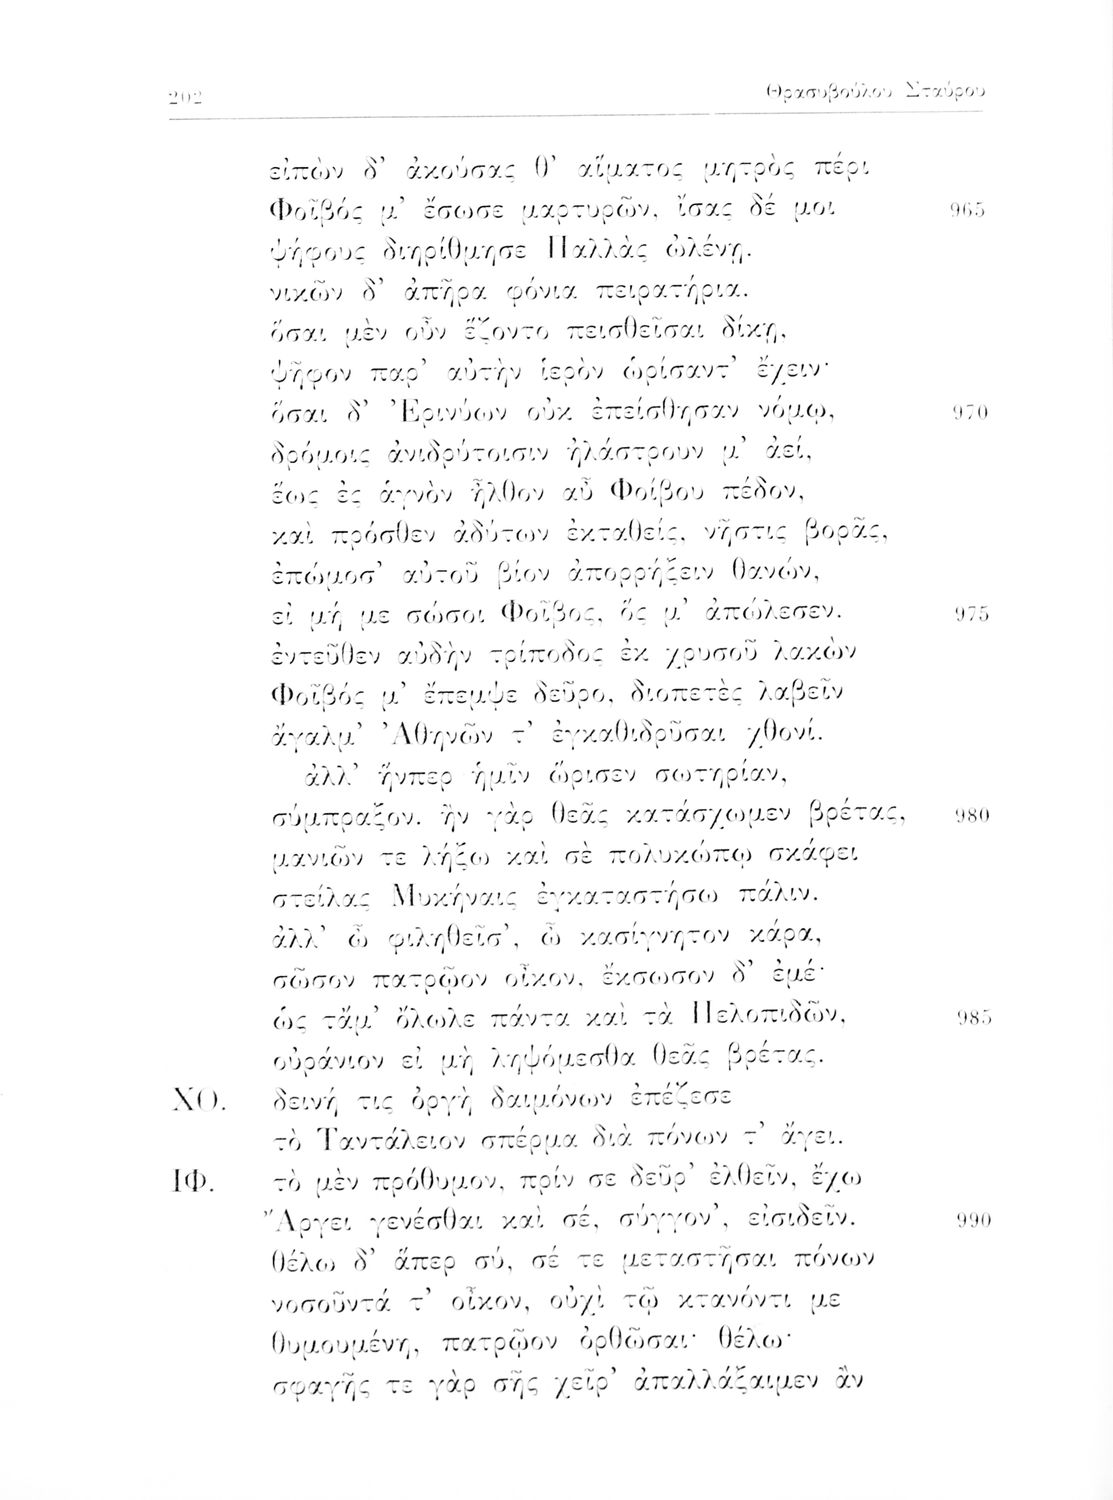 202 Θρασυβούλου Σταύρου
εἰπὼν δ’ ἀκούσας θ’ αἵματος μητρὸς πέρι
Φοῖβός μ’ ἔσωσε μαρτυρῶν, ἴσας δέ μοι 965
ψήφους διηρίθμησε Παλλὰς ὠλένῃ.
νικῶν δ’ ἀπῆρα φόνια πειρατήρια.
ὅσαι μὲν οὖν ἕζοντο πεισθεῖσαι δίκῃ,
ψῆφον παρ’ αὐτὴν ἱερὸν ὡρίσαντ’ ἔχειν·
ὅσαι δ’ Ἐρινύων οὐκ ἐπείσθησαν νόμῳ, 970
δρόμοις ἀνιδρύτοισιν ἠλάστρουν μ’ ἀεί,
ἕως ἐς ἁγνὸν ἦλθον αὖ Φοίβου πέδον,
καὶ πρόσθεν ἀδύτων ἐκταθείς, νῆστις βορᾶς,
ἐπώμοσ’ αὐτοῦ βίον ἀπορρήξειν θανών,
εἰ μή με σώσοι Φοῖβος, ὅς μ’ ἀπώλεσεν. 975
ἐντεῦθεν αὐδὴν τρίποδος ἐκ χρυσοῦ λακὼν
Φοῖβός μ’ ἔπεμψε δεῦρο, διοπετὲς λαβεῖν
ἄγαλμ’ Ἀθηνῶν τ’ ἐγκαθιδρῦσαι χθονί.
ἀλλ’ ἥνπερ ἡμῖν ὥρισεν σωτηρίαν,
σύμπραξον. ἢν γὰρ θεᾶς κατάσχωμεν βρέτας, 980
μανιῶν τε λήξω καὶ σὲ πολυκώπῳ σκάφει
στείλας Μυκήναις ἐγκαταστήσω πάλιν.
ἀλλ’ ὦ φιληθεῖσ’, ὦ κασίγνητον κάρα,
σῶσον πατρῷον οἶκον, ἔκσωσον δ’ ἐμέ·
ὡς τἄμ’ ὄλωλε πάντα καὶ τὰ Πελοπιδῶν, 985
οὐράνιον εἰ μὴ ληψόμεσθα θεᾶς βρέτας.
ΧΟ. δεινή τις ὀργὴ δαιμόνων ἐπέζεσε
τὸ Ταντάλειον σπέρμα διὰ πόνων τ’ ἄγει.
ΙΦ. τὸ μὲν πρόθυμον, πρίν σε δεῦρ’ ἐλθεῖν, ἔχω
Ἄργει γενέσθαι καὶ σέ, σύγγον’, εἰσιδεῖν. 990
θέλω δ’ ἅπερ σύ, σέ τε μεταστῆσαι πόνων
νοσοῦντά τ’ οἶκον, οὐχὶ τῷ κτανόντι με
θυμουμένη, πατρῷον ὀρθῶσαι· θέλω·
σφαγῆς τε γὰρ σῆς χεῖρ’ ἀπαλλάξαιμεν ἂν